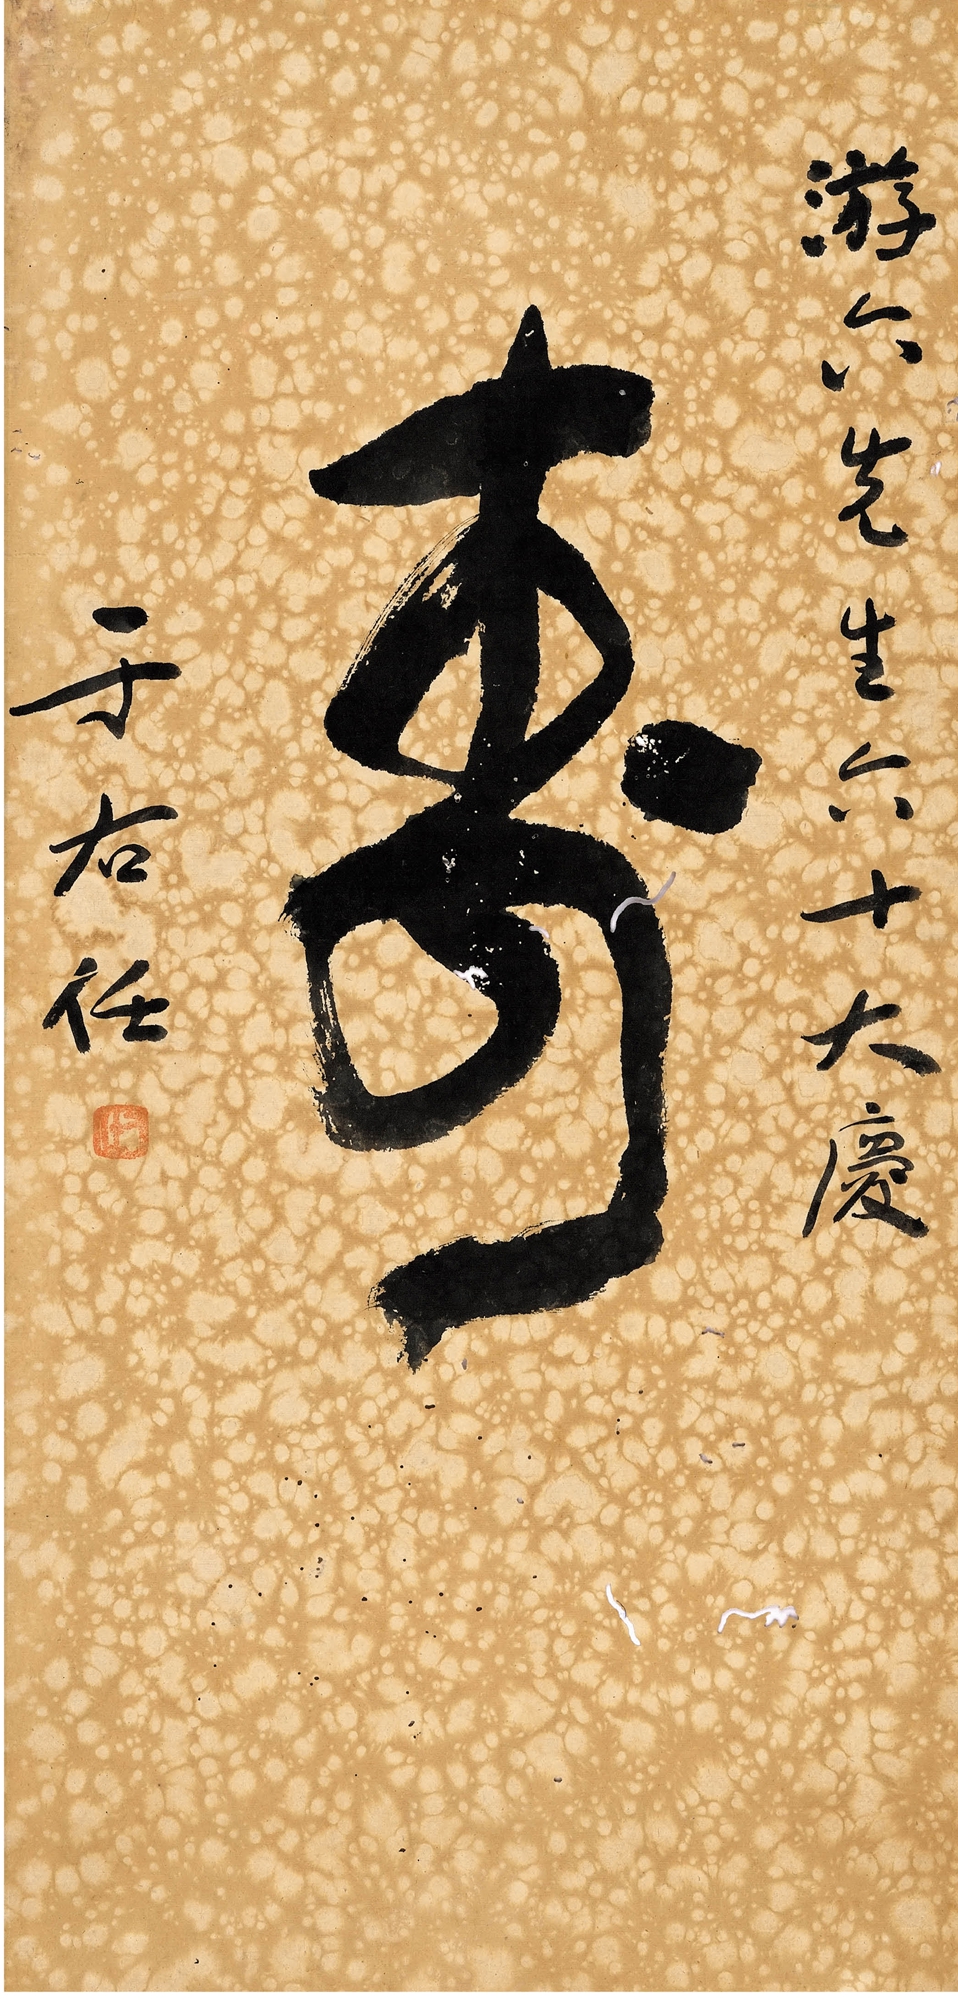 游六先生六十大慶
壽
于右任